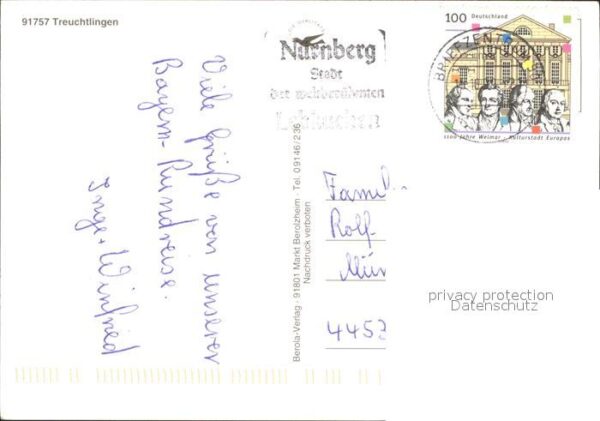 91757 Treuchtlingen
Nürnberg
Stadt
der weltberühmten
Lebkuchen
100 Deutschland
BRIEFZENTRUM
1100 Jahre Weimar · Kulturstadt Europas
Viele Grüße von unserer
Bayern-Rundreise.
Inge + Winfried
Berola-Verlag · 91801 Markt Berolzheim · Tel. 09146/236
Nachdruck verboten
Famil
Rolf
Mün
4453
privacy protection
Datenschutz